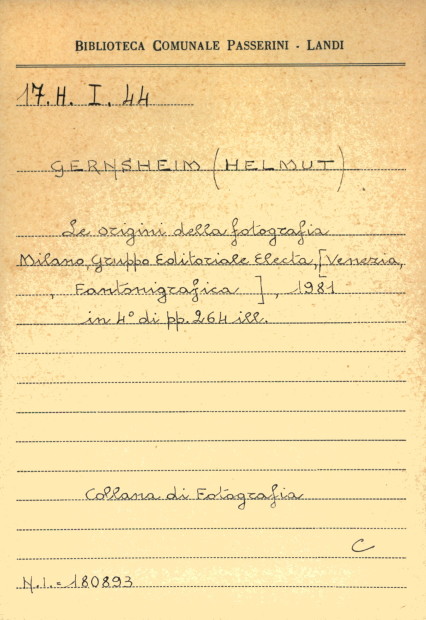 BIBLIOTECA COMUNALE PASSERINI - LANDI
17. H. I. 44
GERNSHEIM (HELMUT)
Le origini della fotografia
Milano, Gruppo Editoriale Electa, [Venezia,
, Fantonigrafica ] , 1981
in 4° di pp. 264 ill.
Collana di Fotografia
C
N.I. = 180893